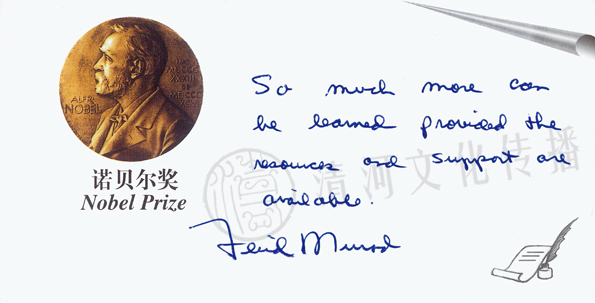 ALFR.
NOBEL
诺贝尔奖
Nobel Prize
So much more can
be learned provided the
resources and support are
available.
Ferid Murad
清河文化传播